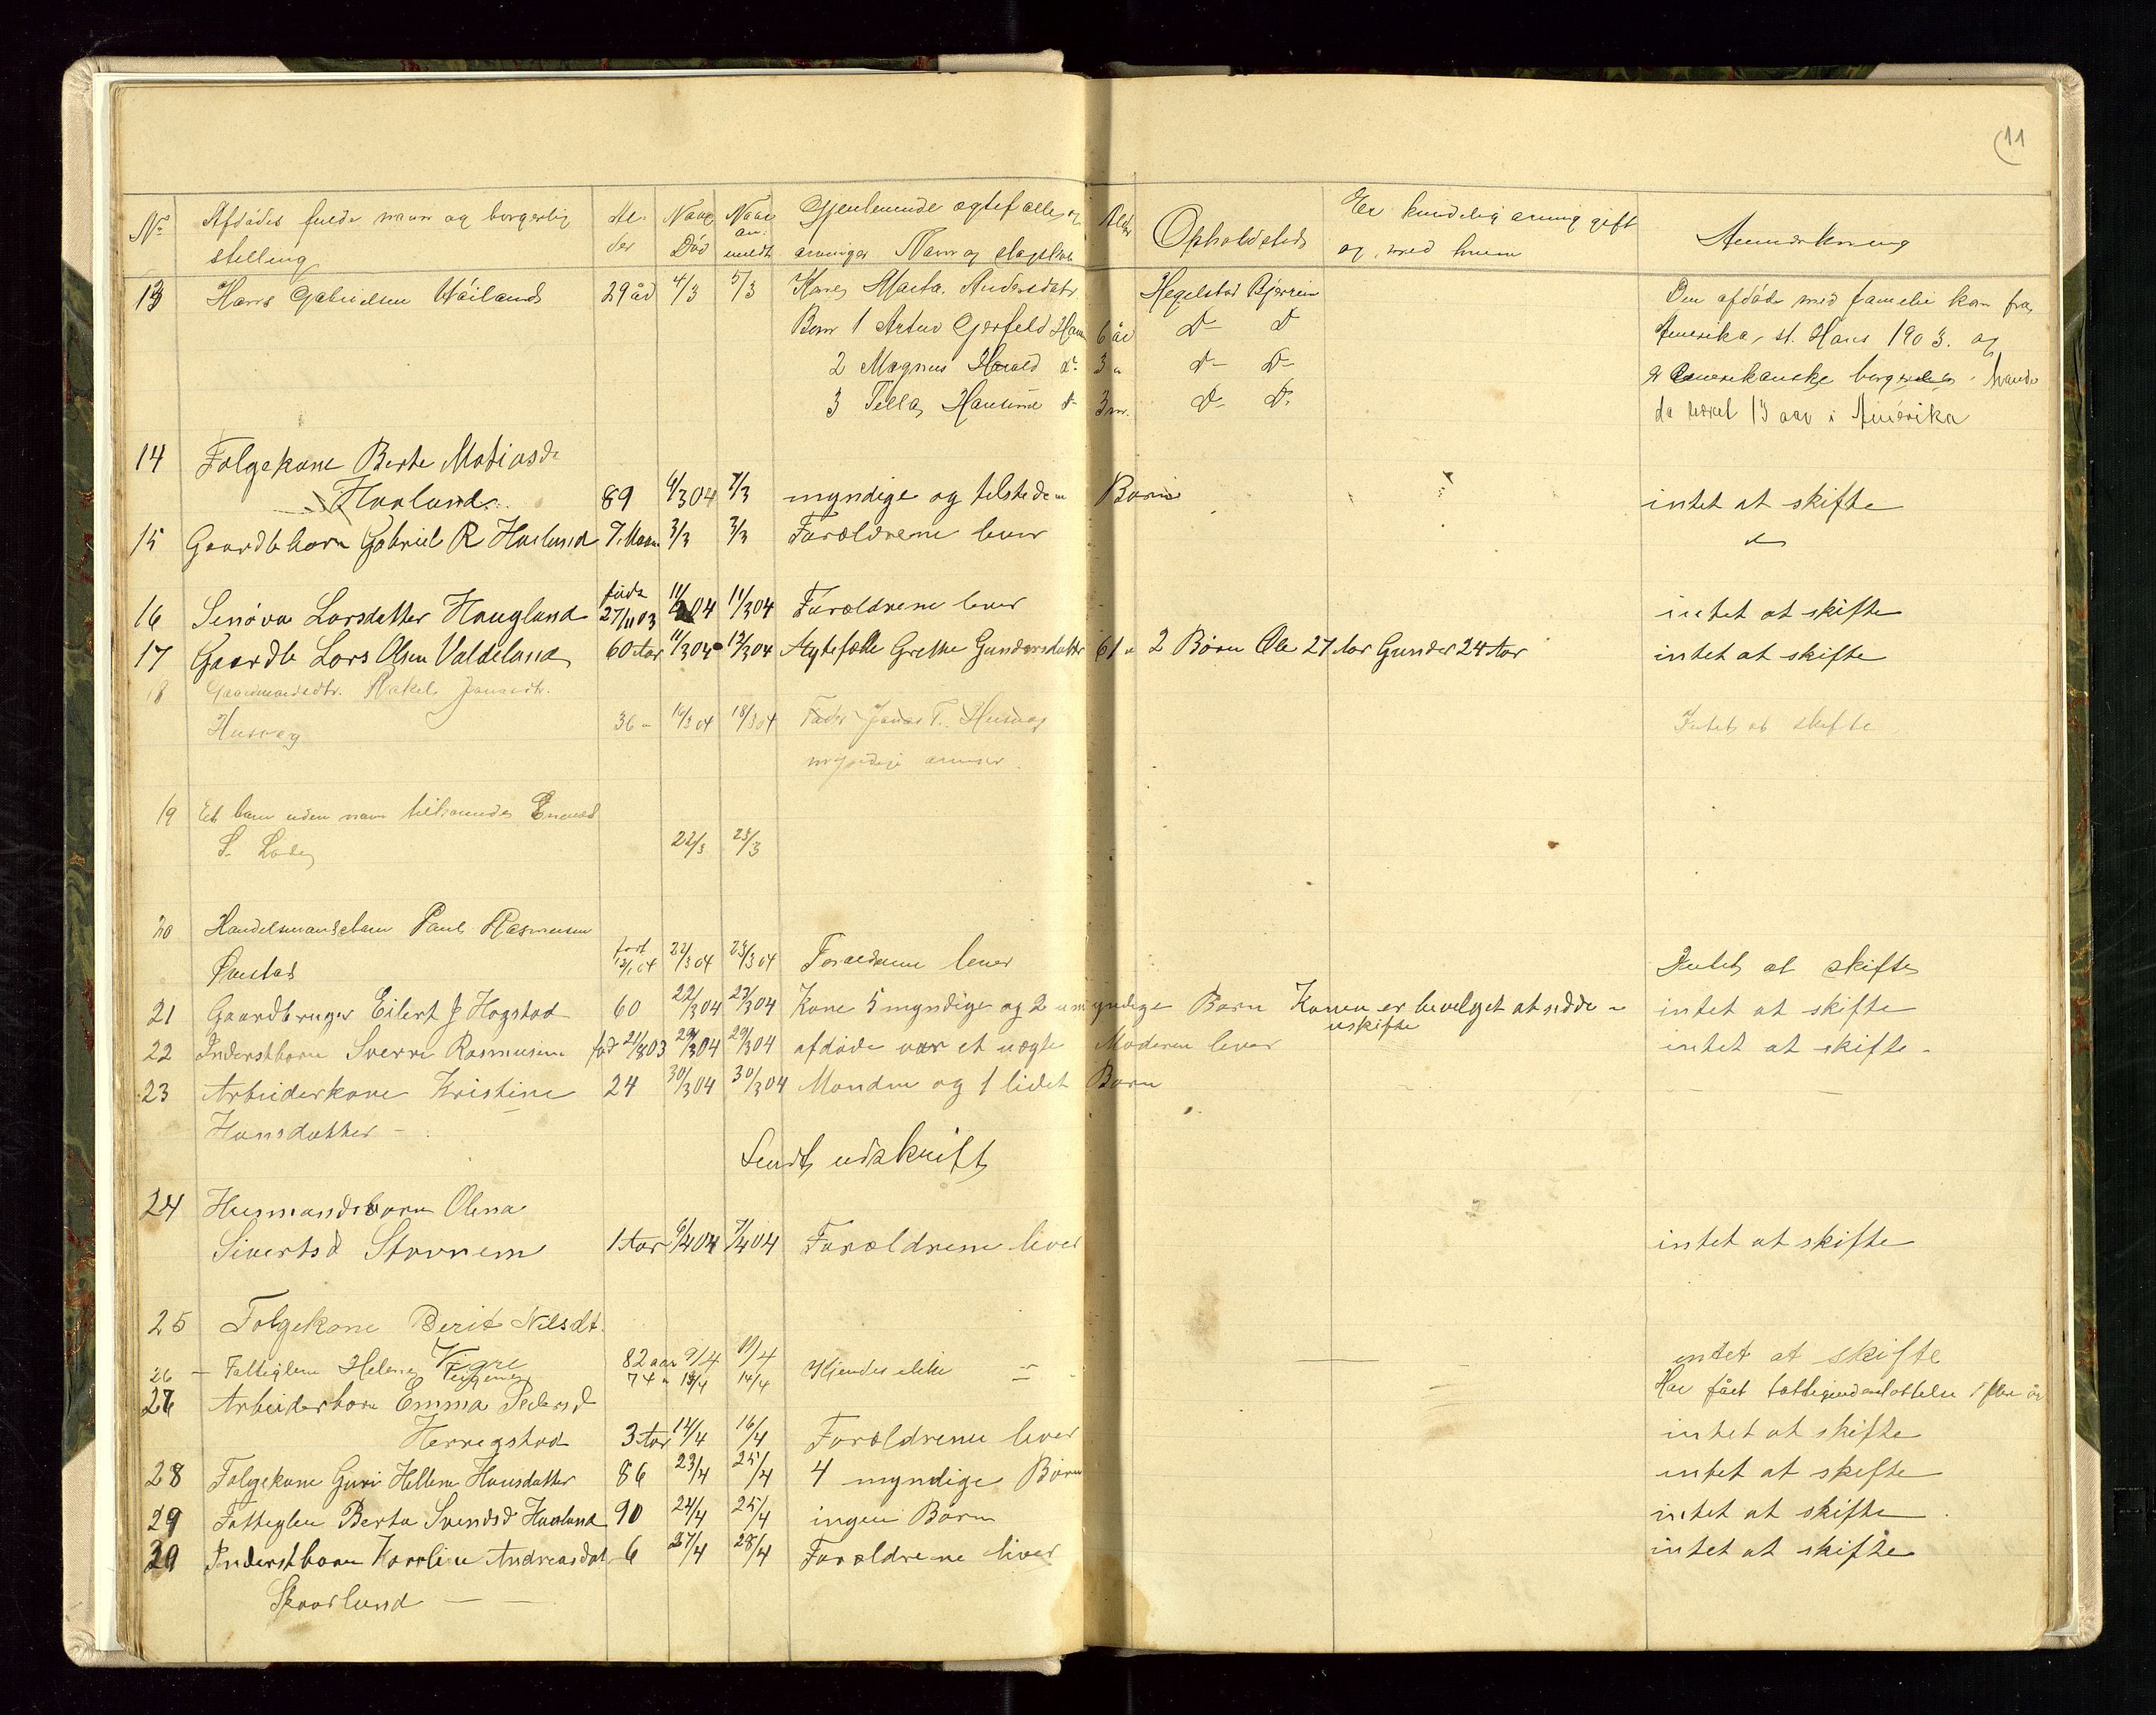 11
No Afdødes fulde navn og borgerlig stilling Al- der Naar Død Naar an- meldt Gjenlevende ægtefælles og arvinger Navn og slagtskab Alder Opholdsted Er kvindelig arving gift og med hvem Anmerkning
13 Hans Gabrielsen 29 år 4/3 5/3 Kone Marta Andersdatr Hegelstad Bjerrein Den afdøde med familie kom fra
Born 1 Artur Gerfeld Hans 6 år Do Do Amerika st. Hans 1903. og
2 Magnus Harald do 3 " Do Do er Amerikanske borgere
3 Tella Hansine do 3 m. Do Do da været 13 aar i Amerika
14 Folgekone Berte Matiasdr
Haaland 89 6/3 04 7/3 myndige og tilstede Born intet at skifte
15 Gaardbborn Gabriel R Haaland 7 Maan 3/3 3/3 Forældrene lever do
16 Senøva Larsdatter Haugland føds 27/11 03 11/3 04 11/3 04 Forældrene lever intet at skifte
17 Gaardb Lars Olsen Valdeland 60 Aar 11/3 04 12/3 04 Ægtefælle Grethe Gundersdatter 61 " 2 Børn Ole 27 Aar Gunder 24 Aar intet at skifte
18 Gaardmandsdtr. Rakel Jonasdtr.
Husveg 36 " 16/3 04 18/3 04 Fader Jonas T. Husveg Intet at skifte
myndige
19 Et barn uden navn tilhørende
S. 22/3 23/3
20 Handelsmandsbarn Paul Rasmusen
født 12/1 04 22/3 04 23/3 04 Forældrene lever Intet at skifte
21 Gaardbruger Eilert J Hogstad 60 22/3 04 23/3 04 Kone 5 myndige og 2 umyndige Børn Konen er bevilget at sidde i uskifte intet at skifte
22 Inderstborn Sverre Rasmusen fød 21/8 03 29/3 04 29/3 04 afdøde var et uægte Moderen lever intet at skifte -
23 Arbeiderkone Kristine 24 30/3 04 30/3 04 Manden og 1 lidet Barn
Hansdatter -
Sendt udskrift
24 Husmandsborn Olena
Sivertsd Stornem 1 Aar 6/4 04 7/4 04 Forældrene lever intet at skifte
25 Folgekone Berit Nilsdt.
Vigre 82 aar 9/4 10/4 intet at skifte
26 - Fattiglem Helene 74 " 13/4 14/4 Kjendes ikke Har fået fattigunderstøttelse i flere år
27 Arbeiderborn Emma Pedersd
Herregstad 3 Aar 14/4 16/4 Forældrene lever intet at skifte
28 Folgekone Guri Hellene Hansdatter 86 23/4 25/4 4 myndige Børn intet at skifte
29 Fattiglem Berta Svendsd Haaland 90 24/4 25/4 ingen Barn intet at skifte
30 Inderstborn Karoline Andreasdat 6 27/4 28/4 Forældrene lever intet at skifte
Skaarlund